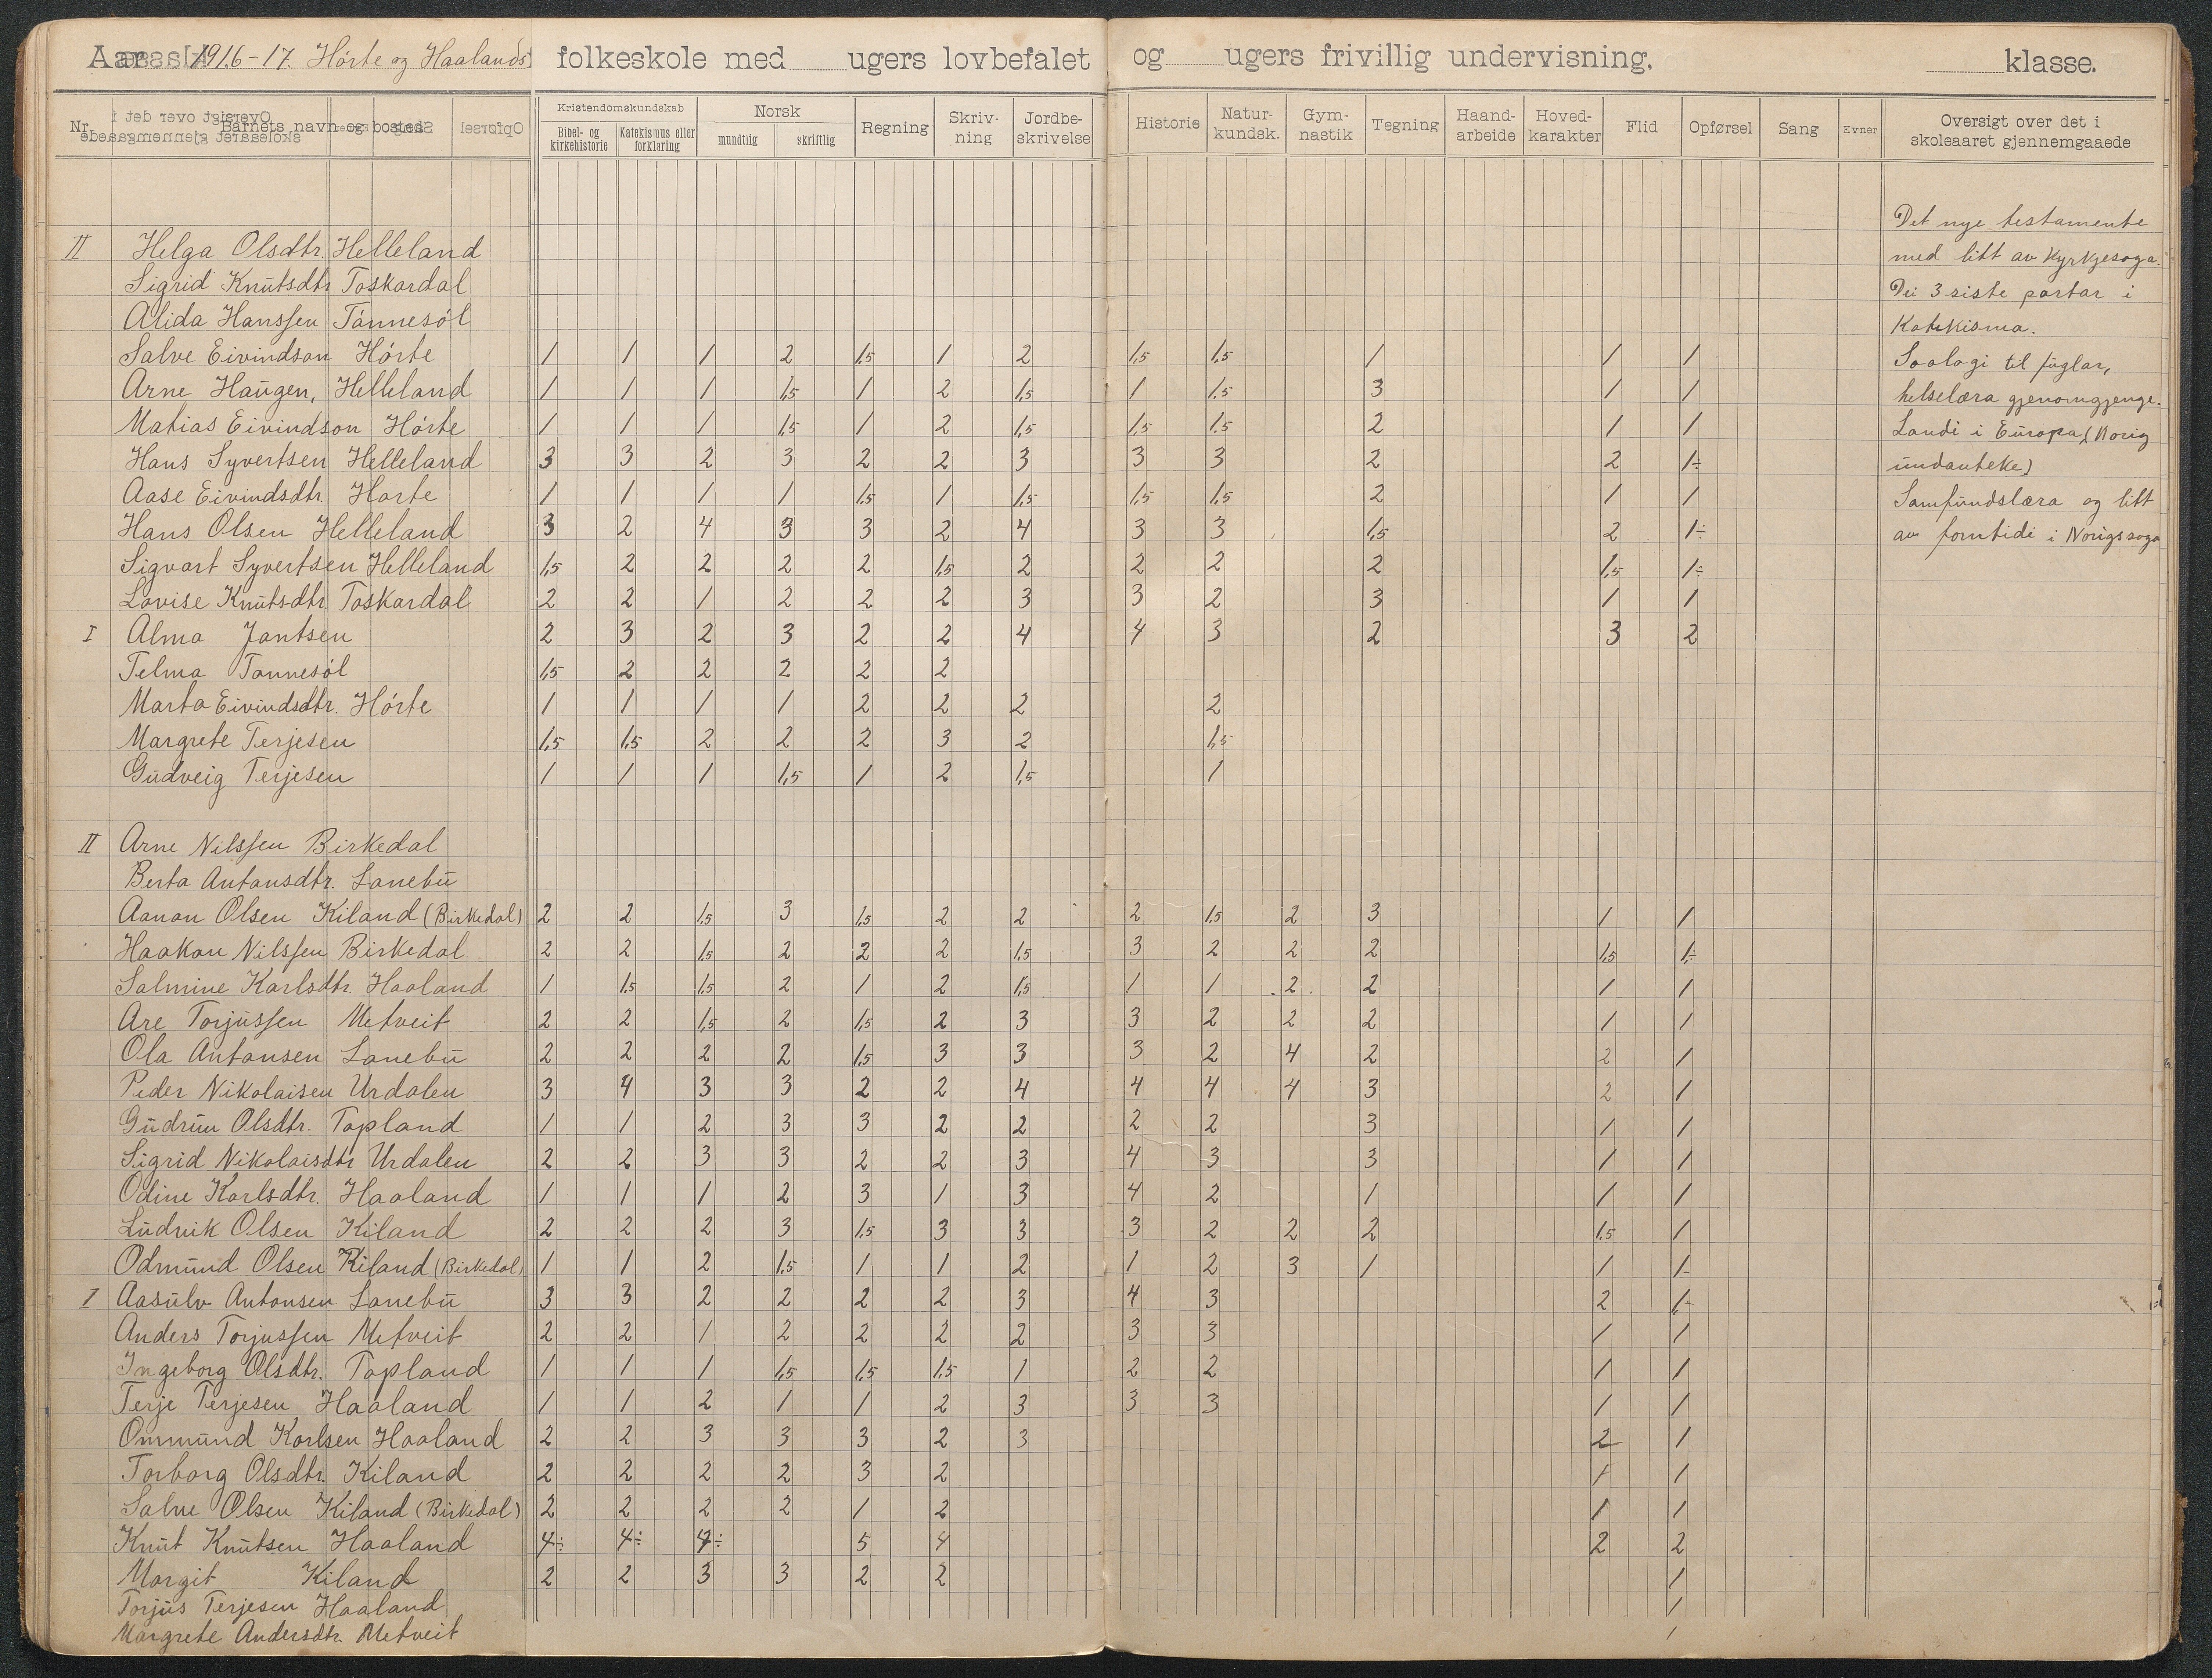 Aar 1916-17. Hórte og Haalands folkeskole med ugers lovbefalet og ugers frivillig undervisning. klasse.
Nr. Barnets navn og bosted Kristendomskundskab Bibel- og kirkehistorie Katekismus eller forklaring Norsk mundtlig skriftlig Regning Skriv-ning Jordbe-skrivelse Historie Natur-kundsk. Gym-nastik Tegning Haand-arbeide Hoved-karakter Flid Opførsel Sang Evner Oversigt over det i skoleaaret gjennemgaaede
II Helga Olsdtr. Helleland
Sigrid Knutsdtr Toskardal
Alida Hanssen Tánnesól
Salve Eivindson Hórte 1 1 1 2 1,5 1 2 1,5 1,5 1 1 1
Arne Haugen, Helleland 1 1 1 1,5 1 2 1,5 1 1,5 3 1 1
Matias Eivindson Hórte 1 1 1 1,5 1 2 1,5 1,5 1.5 2 1 1
Hans Syvertsen Helleland 3 3 2 3 2 2 3 3 3 2 2 1÷
Aase Eivindsdtr. Horte 1 1 1 1 1,5 1 1,5 1,5 1,5 2 1 1
Hans Olsen Helleland 3 2 4 3 3 2 4 3 3 1,5 2 1÷
Sigvart Syvertsen Helleland 1,5 2 2 2 2 1,5 2 2 2 2 1,5 1÷
Lovise Knutsdtr. Toskardal 2 2 1 2 2 2 3 3 2 3 1 1
I Alma Jantsen 2 3 2 3 2 2 4 4 3 2 3 2
Telma Tonnesól 1,5 2 2 2 2 2
Marta Eivindsdtr. Hórte 1 1 1 1 2 2 2 2
Margrete Terjesen 1,5 1,5 2 2 2 3 2 1,5
Gudveig Terjesen 1 1 1 1,5 1 2 1,5 1
II Arne Nilssen Birkedal
Berta Antonsdtr. Lanebu
Aanon Olsen Kiland (Birkedal) 2 2 1,5 3 1,5 2 2 2 1,5 2 3 1 1
Haakon Nilssen Birkedal 2 2 1,5 2 2 2 1,5 3 2 2 2 1,5 1÷
Salmine Karlsdtr. Haaland 1 1,5 1,5 2 1 2 1,5 1 1 2 2 1 1
Are Torjussen Metveit 2 2 1,5 2 1,5 2 3 3 2 2 2 1 1
Ola Antonsen Lanebu 2 2 2 2 1,5 3 3 3 2 4 2 2 1
Peder Nikolaisen Urdalen 3 4 3 3 2 2 4 4 4 4 3 2 1
Gudrun Olsdtr. Topland 1 1 2 3 3 2 2 2 2 3 1 1
Sigrid Nikolaisdtr Urdalen 2 2 3 3 2 2 3 4 3 3 1 1
Odine Karlsdtr. Haaland 1 1 1 2 3 1 3 4 2 1 1 1
Ludvik Olsen Kiland 2 2 2 3 1,5 3 3 3 2 2 2 1,5 1
Odmund Olsen Kiland (Birkedal) 1 1 2 1,5 1 1 2 1 2 3 1 1 1-
I Aasulv Antonsen Lanebu 3 3 2 2 2 2 3 4 3 2 1-
Anders Torjussen Metveit 2 2 1 2 2 2 2 3 3 1 1
Ingeborg Olsdtr. Topland 1 1 1 1,5 1,5 1,5 1 2 2 1 1
Terje Terjesen Haaland 1 1 2 1 1 2 3 3 3 1 1
Ommund Karlsen Haaland 2 2 3 3 3 2 3 2 1
Torborg Olsdtr. Kiland 2 2 2 2 3 2 1 1
Salve Olsen Kiland (Birkedal) 2 2 2 2 1 2 1 1
Knut Knutsen Haaland 4÷ 4÷ 4÷ 5 4 2 2
Margit Kiland 2 2 3 3 2 2 1
Torjus Terjesen Haaland 1
Margrete Andersdtr. Metveit 1
Det nye testamente
med litt av Kyrkjesoga.
Dei 3 siste partar i
Katekisma.
Soologi til fuglar,
helselæra gjenomgjenge.
Landi i Europa, (Norig
undanteke)
Samfundslæra og litt
av forntidi i Norigssoga